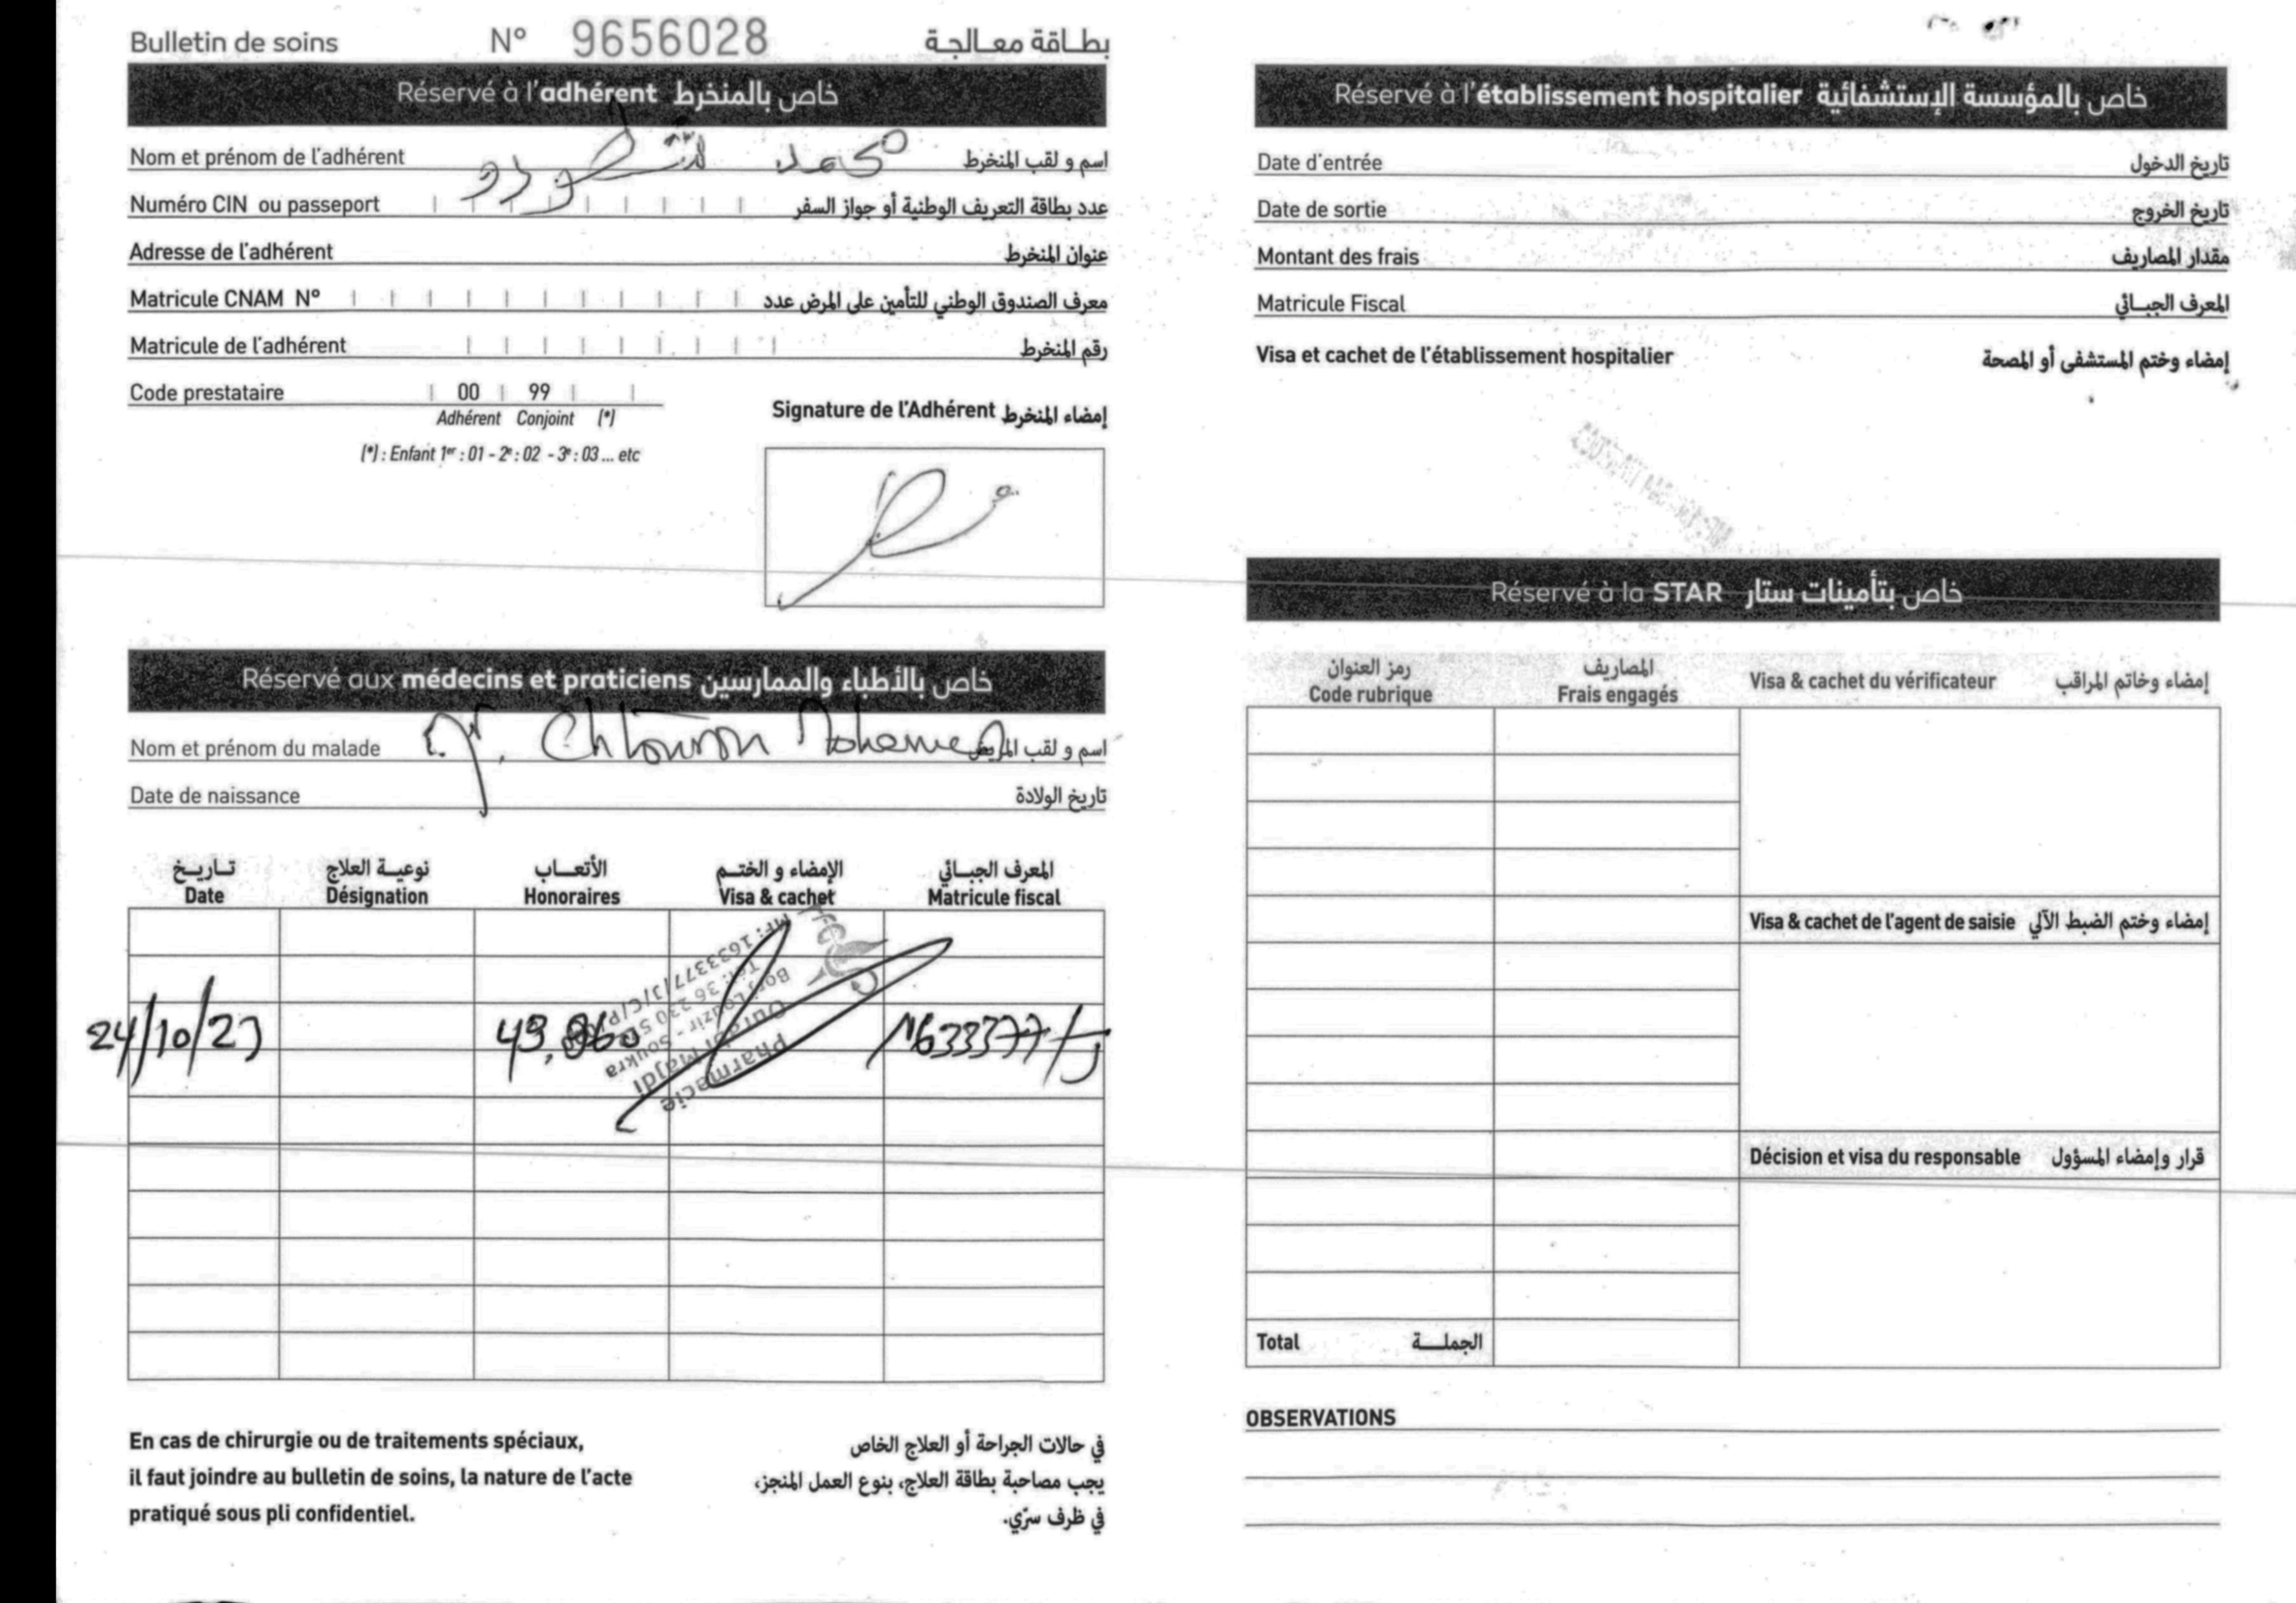 Bulletin de soins N° 9656028 بطاقة معالجة
Réservé à l'adhérent خاص بالمنخرط
Nom et prénom de l'adhérent محمد شطورو اسم و لقب المنخرط
Numéro CIN ou passeport عدد بطاقة التعريف الوطنية أو جواز السفر
Adresse de l'adhérent عنوان المنخرط
Matricule CNAM N° معرف الصندوق الوطني للتأمين على المرض عدد
Matricule de l'adhérent رقم المنخرط
Code prestataire 00 99
Adhérent Conjoint (*)
(*) : Enfant 1er : 01 - 2e : 02 - 3e : 03 ... etc
Signature de l'Adhérent إمضاء المنخرط
Réservé aux médecins et praticiens خاص بالأطباء والممارسين
Nom et prénom du malade Chtourou Mohamed اسم و لقب المريض
Date de naissance تاريخ الولادة
تاريخ نوعية العلاج الأتعاب الإمضاء و الختم المعرف الجبائي
Date Désignation Honoraires Visa & cachet Matricule fiscal
24/10/23 49,860 1633377/J
Pharmacie
Ourabi Majdi
Borj Louzir - Soukra
Tél: 36 230
MF: 1633377/J/C/P/000
En cas de chirurgie ou de traitements spéciaux,
il faut joindre au bulletin de soins, la nature de l'acte
pratiqué sous pli confidentiel.
في حالات الجراحة أو العلاج الخاص
يجب مصاحبة بطاقة العلاج، بنوع العمل المنجز،
في ظرف سرّي.
Réservé à l'établissement hospitalier خاص بالمؤسسة الإستشفائية
Date d'entrée تاريخ الدخول
Date de sortie تاريخ الخروج
Montant des frais مقدار المصاريف
Matricule Fiscal المعرف الجبائي
Visa et cachet de l'établissement hospitalier إمضاء وختم المستشفى أو المصحة
Réservé à la STAR خاص بتأمينات ستار
رمز العنوان المصاريف
Code rubrique Frais engagés Visa & cachet du vérificateur إمضاء وخاتم المراقب
Visa & cachet de l'agent de saisie إمضاء وختم الضبط الآلي
Décision et visa du responsable قرار وإمضاء المسؤول
Total الجملة
OBSERVATIONS